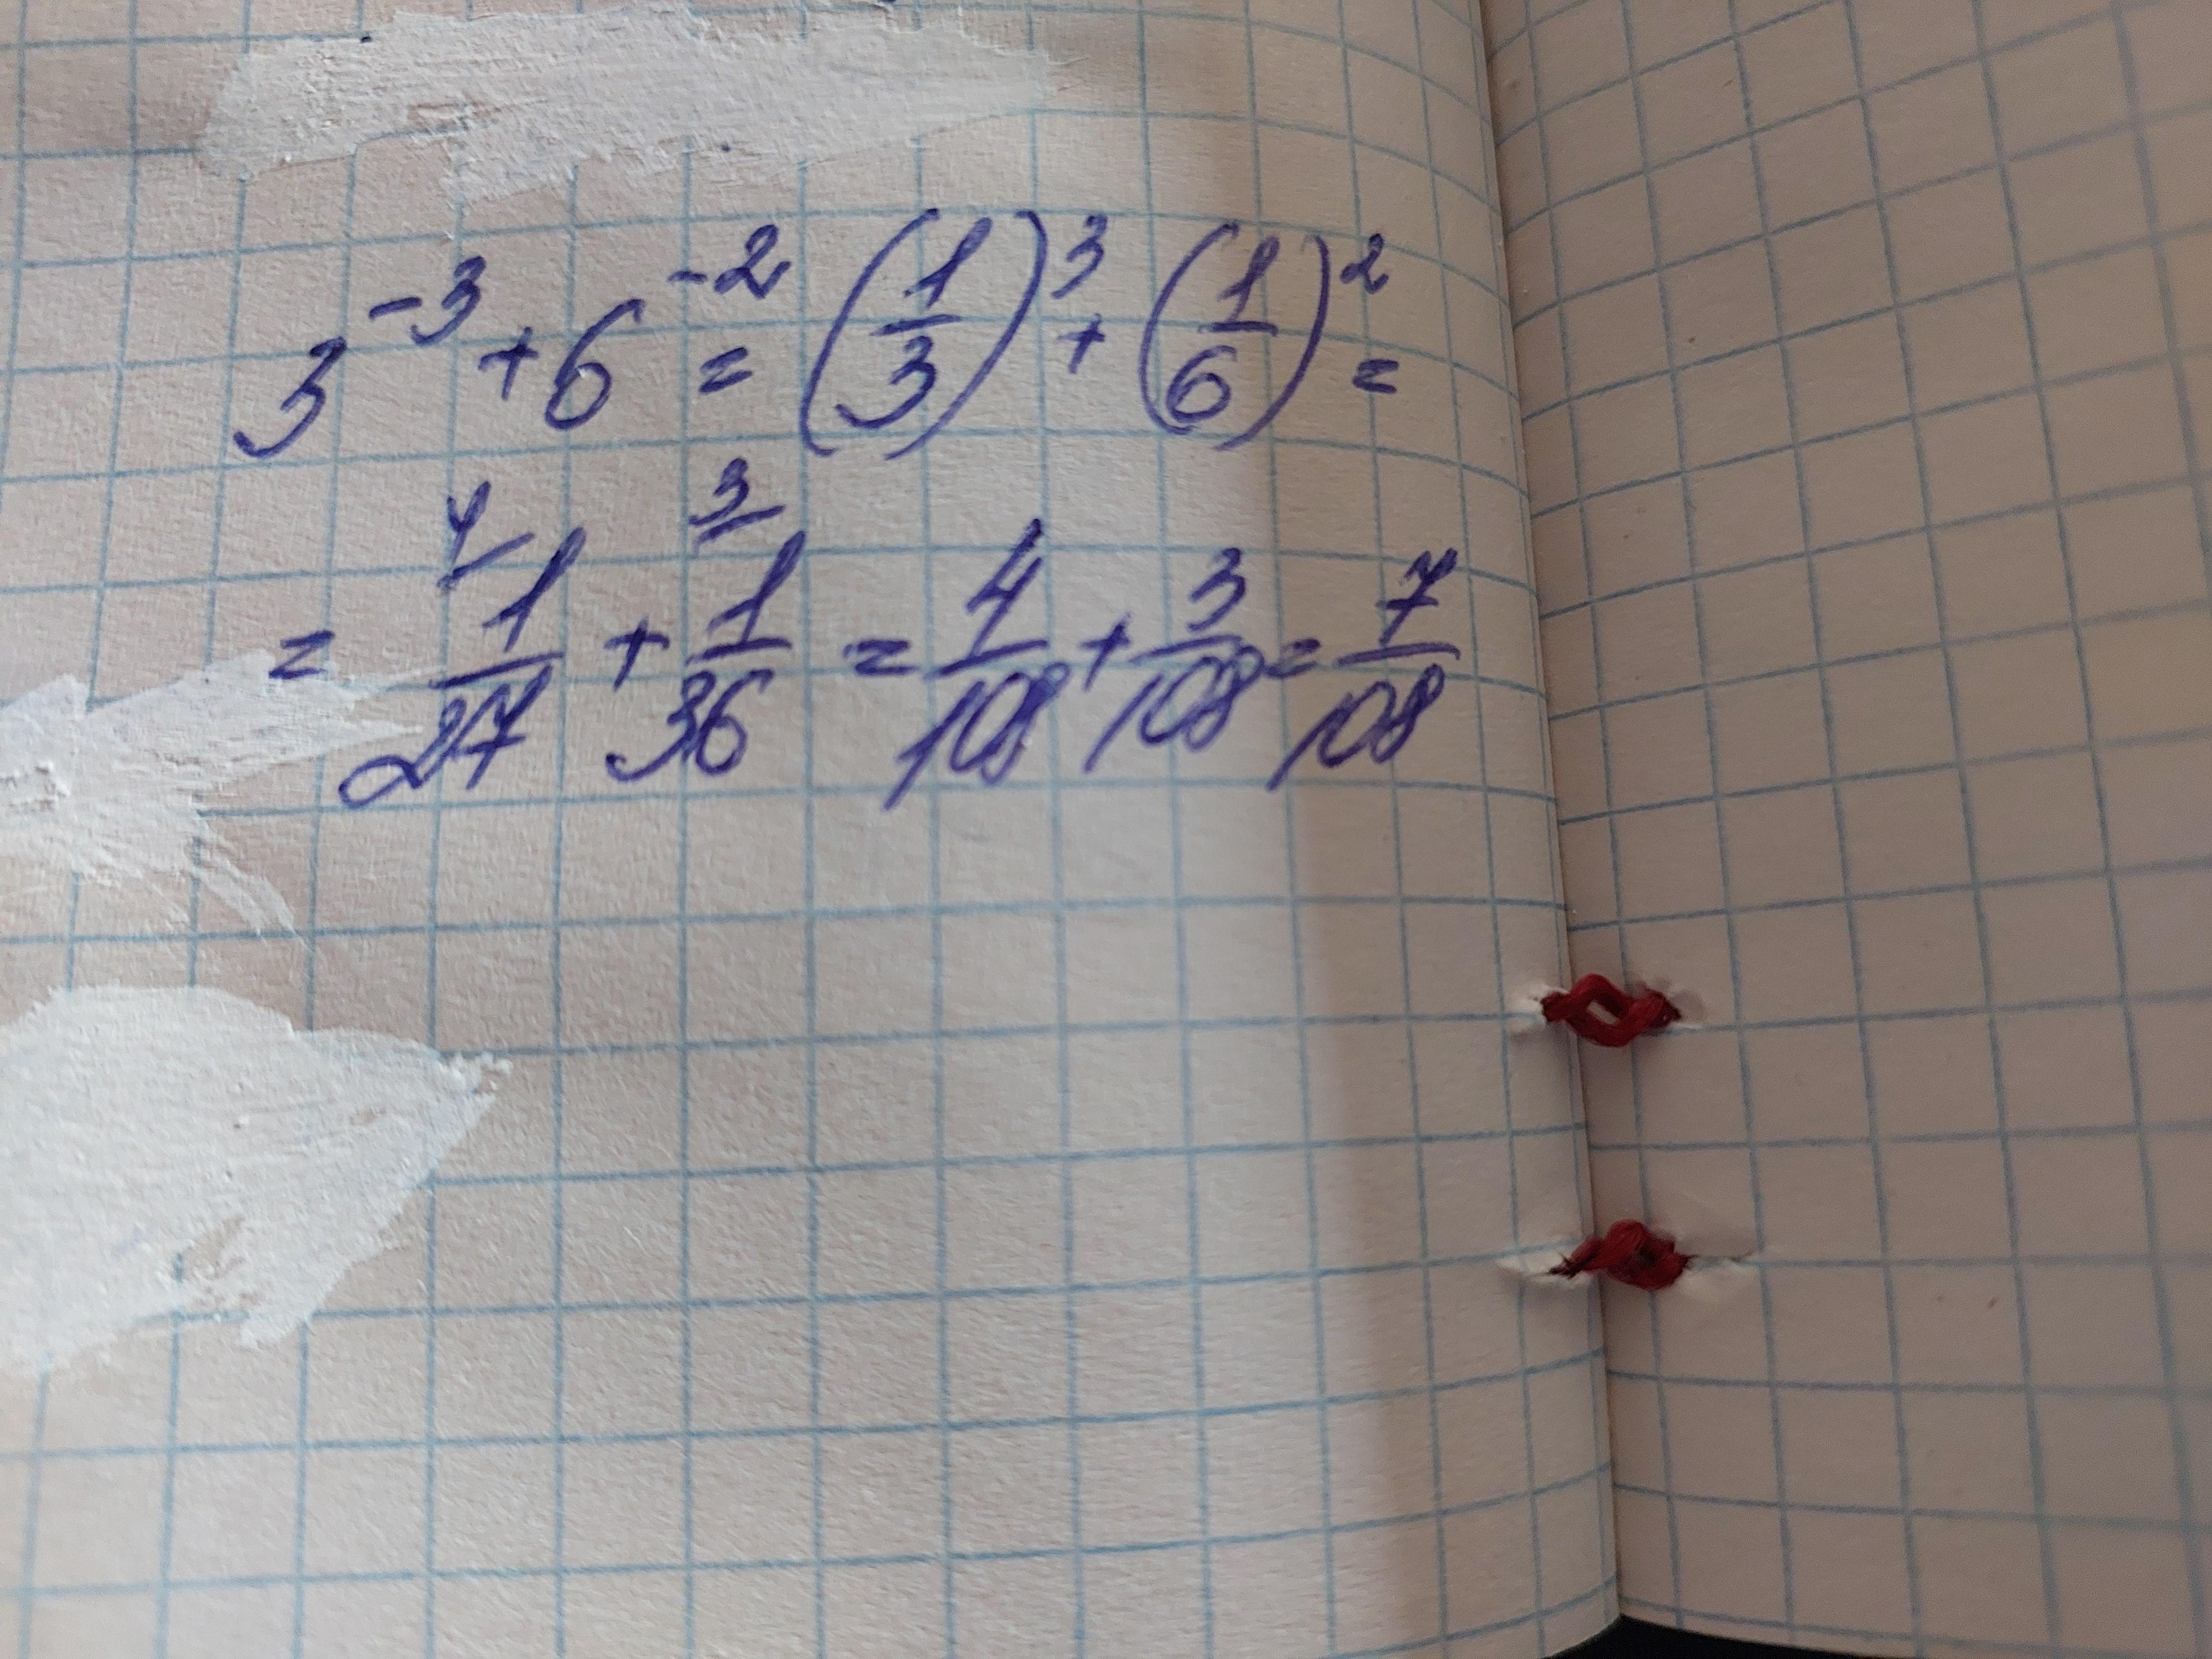 3⁻³ + 6⁻² = (1/3)³ + (1/6)² =
= ⁴⁄1/27 + ³⁄1/36 = 4/108 + 3/108 = 7/108